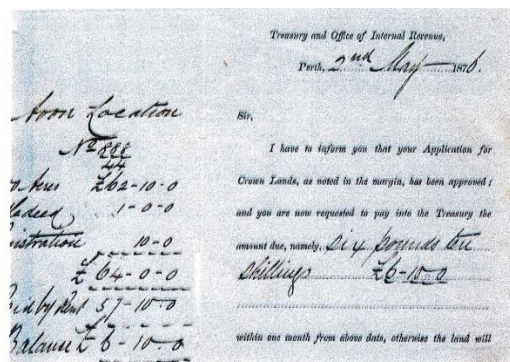 Treasury and Office of Internal Revenue,
Perth, 2nd May 1876.
Avon Location
No 888
44
Acres £62-10-0
deed 1-0-0
istration 10-0
£ 64-0-0
by Rent 57-10-0
Balance £ 6-10-0
Sir,
I have to inform you that your Application for
Crown Lands, as noted in the margin, has been approved;
and you are now requested to pay into the Treasury the
amount due, namely, six pounds ten
shillings £6-10-0
within one month from above date, otherwise the land will